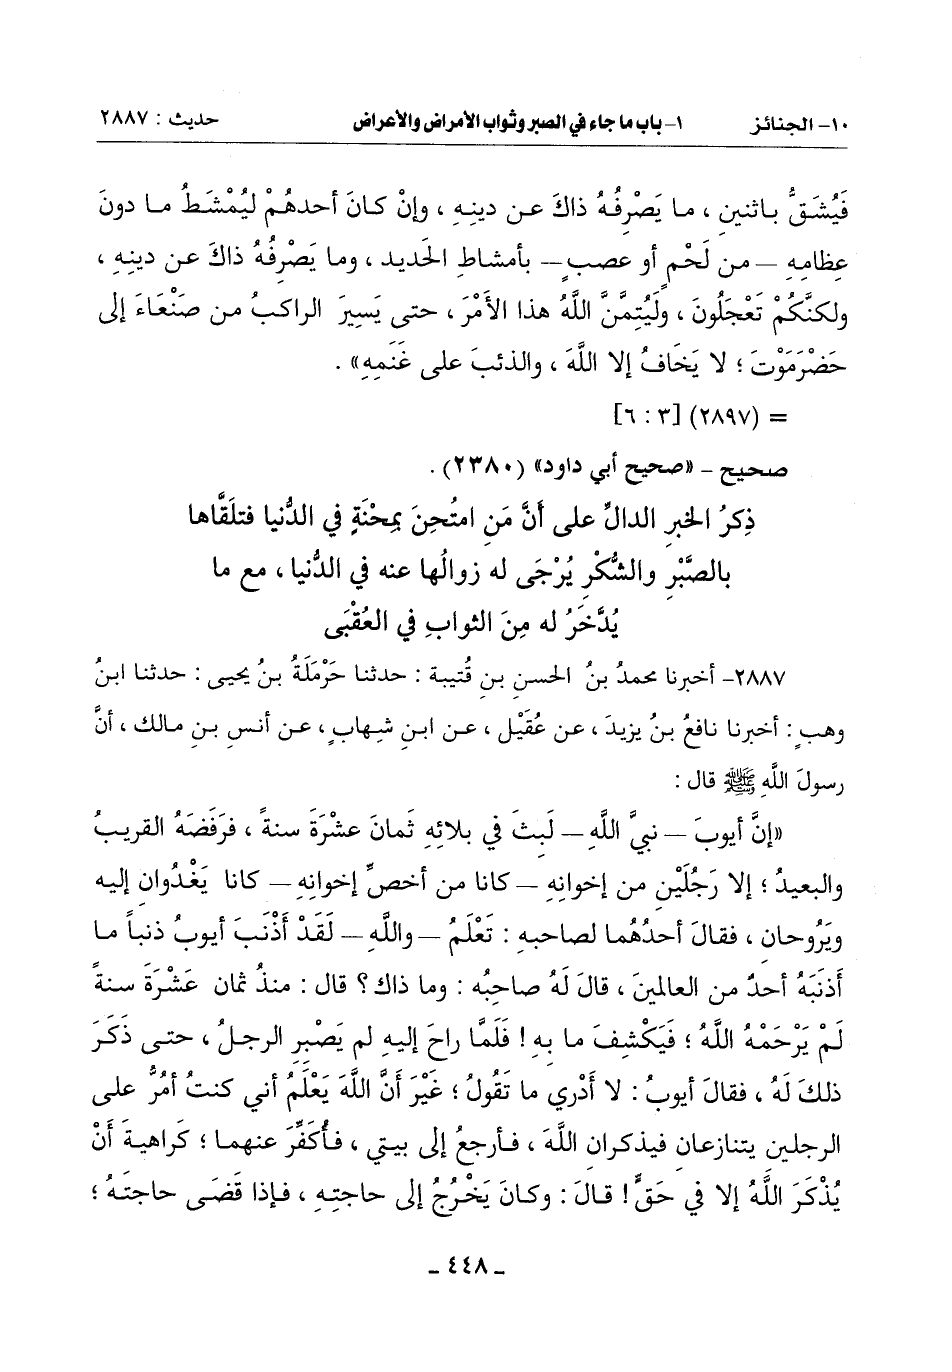 ١٠- الجنائز ١- باب ما جاء في الصبر وثواب الأمراض والأعراض حديث : ٢٨٨٧
فَيُشَقُّ باثنينِ ، ما يَصْرِفُهُ ذاكَ عن دينِهِ ، وإنْ كانَ أحدهُمْ ليُمْشَطُ ما دونَ
عِظامِهِ – من لَحْمٍ أو عصبٍ – بأمشاطِ الحَديد ، وما يَصْرِفُهُ ذاكَ عن دينِهِ ،
ولكنَّكُمْ تَعْجَلُونَ ، ولَيُتِمَّنَّ اللَّهُ هذا الأمْرَ ، حتى يَسِيرَ الراكبُ من صَنْعَاءَ إلى
حَضْرَمَوْتَ ؛ لا يَخَافُ إلا اللَّهَ ، والذئبَ على غَنَمِهِ» .
= (٢٨٩٧) [٣ : ٦]
صحيح – «صحيح أبي داود» (٢٣٨٠) .
ذِكرُ الخبر الدالِّ على أنَّ مَنِ امتُحِنَ بمِحْنَةٍ في الدُّنيا فتلَقَّاها
بالصَّبْرِ والشُّكْرِ يُرْجَى له زوالُها عنه في الدُّنيا ، مع ما
يُدَّخَرُ له مِنَ الثوابِ في العُقْبَى
٢٨٨٧- أخبرنا محمدُ بنُ الحسنِ بنِ قُتيبة : حدثنا حَرْمَلَةُ بنُ يحيى : حدثنا ابنُ
وهبٍ : أخبرنا نافعُ بنُ يزيدَ ، عن عُقَيْلٍ ، عن ابنِ شهابٍ ، عن أنسِ بنِ مالك ، أنَّ
رسولَ اللَّهِ ﷺ قال :
«إنَّ أيوبَ – نبيَّ اللَّهِ – لَبِثَ في بلائِهِ ثَمانَ عشْرَةَ سنةً ، فرَفَضَهُ القريبُ
والبعيدُ ؛ إلا رَجُلَيْنِ من إخوانِهِ – كانا من أخصِّ إخوانِهِ – كانا يَغْدُوانِ إليه
ويَرُوحانِ ، فقالَ أحدُهُما لصاحبِهِ : تَعْلَمُ – واللَّهِ – لَقَدْ أَذْنَبَ أيوبُ ذنباً ما
أَذنَبَهُ أحدٌ من العالمينَ ، قالَ لَهُ صاحبُه : وما ذاكَ ؟ قال : منذُ ثمان عَشْرَةَ سنةً
لَمْ يَرْحَمْهُ اللَّهُ ؛ فيَكْشِفَ ما بِهِ ! فَلَمَّا راحَ إليهِ لم يَصْبِرِ الرجلُ ، حتى ذَكَرَ
ذلكَ لَهُ ، فقالَ أيوبُ : لا أَدْرِي ما تَقُولُ ؛ غَيْرَ أنَّ اللَّهَ يَعْلَمُ أني كنتُ أمُرُّ على
الرجلينِ يتنازعان فيذكران اللَّهَ ، فأرجعُ إلى بيتي ، فأُكَفِّرَ عنهما ؛ كَراهيةَ أنْ
يُذْكَرَ اللَّهُ إلا في حَقٍّ ! قالَ : وكانَ يَخْرُجُ إلى حاجتِهِ ، فإذا قضَى حاجتَهُ ؛
- ٤٤٨ -